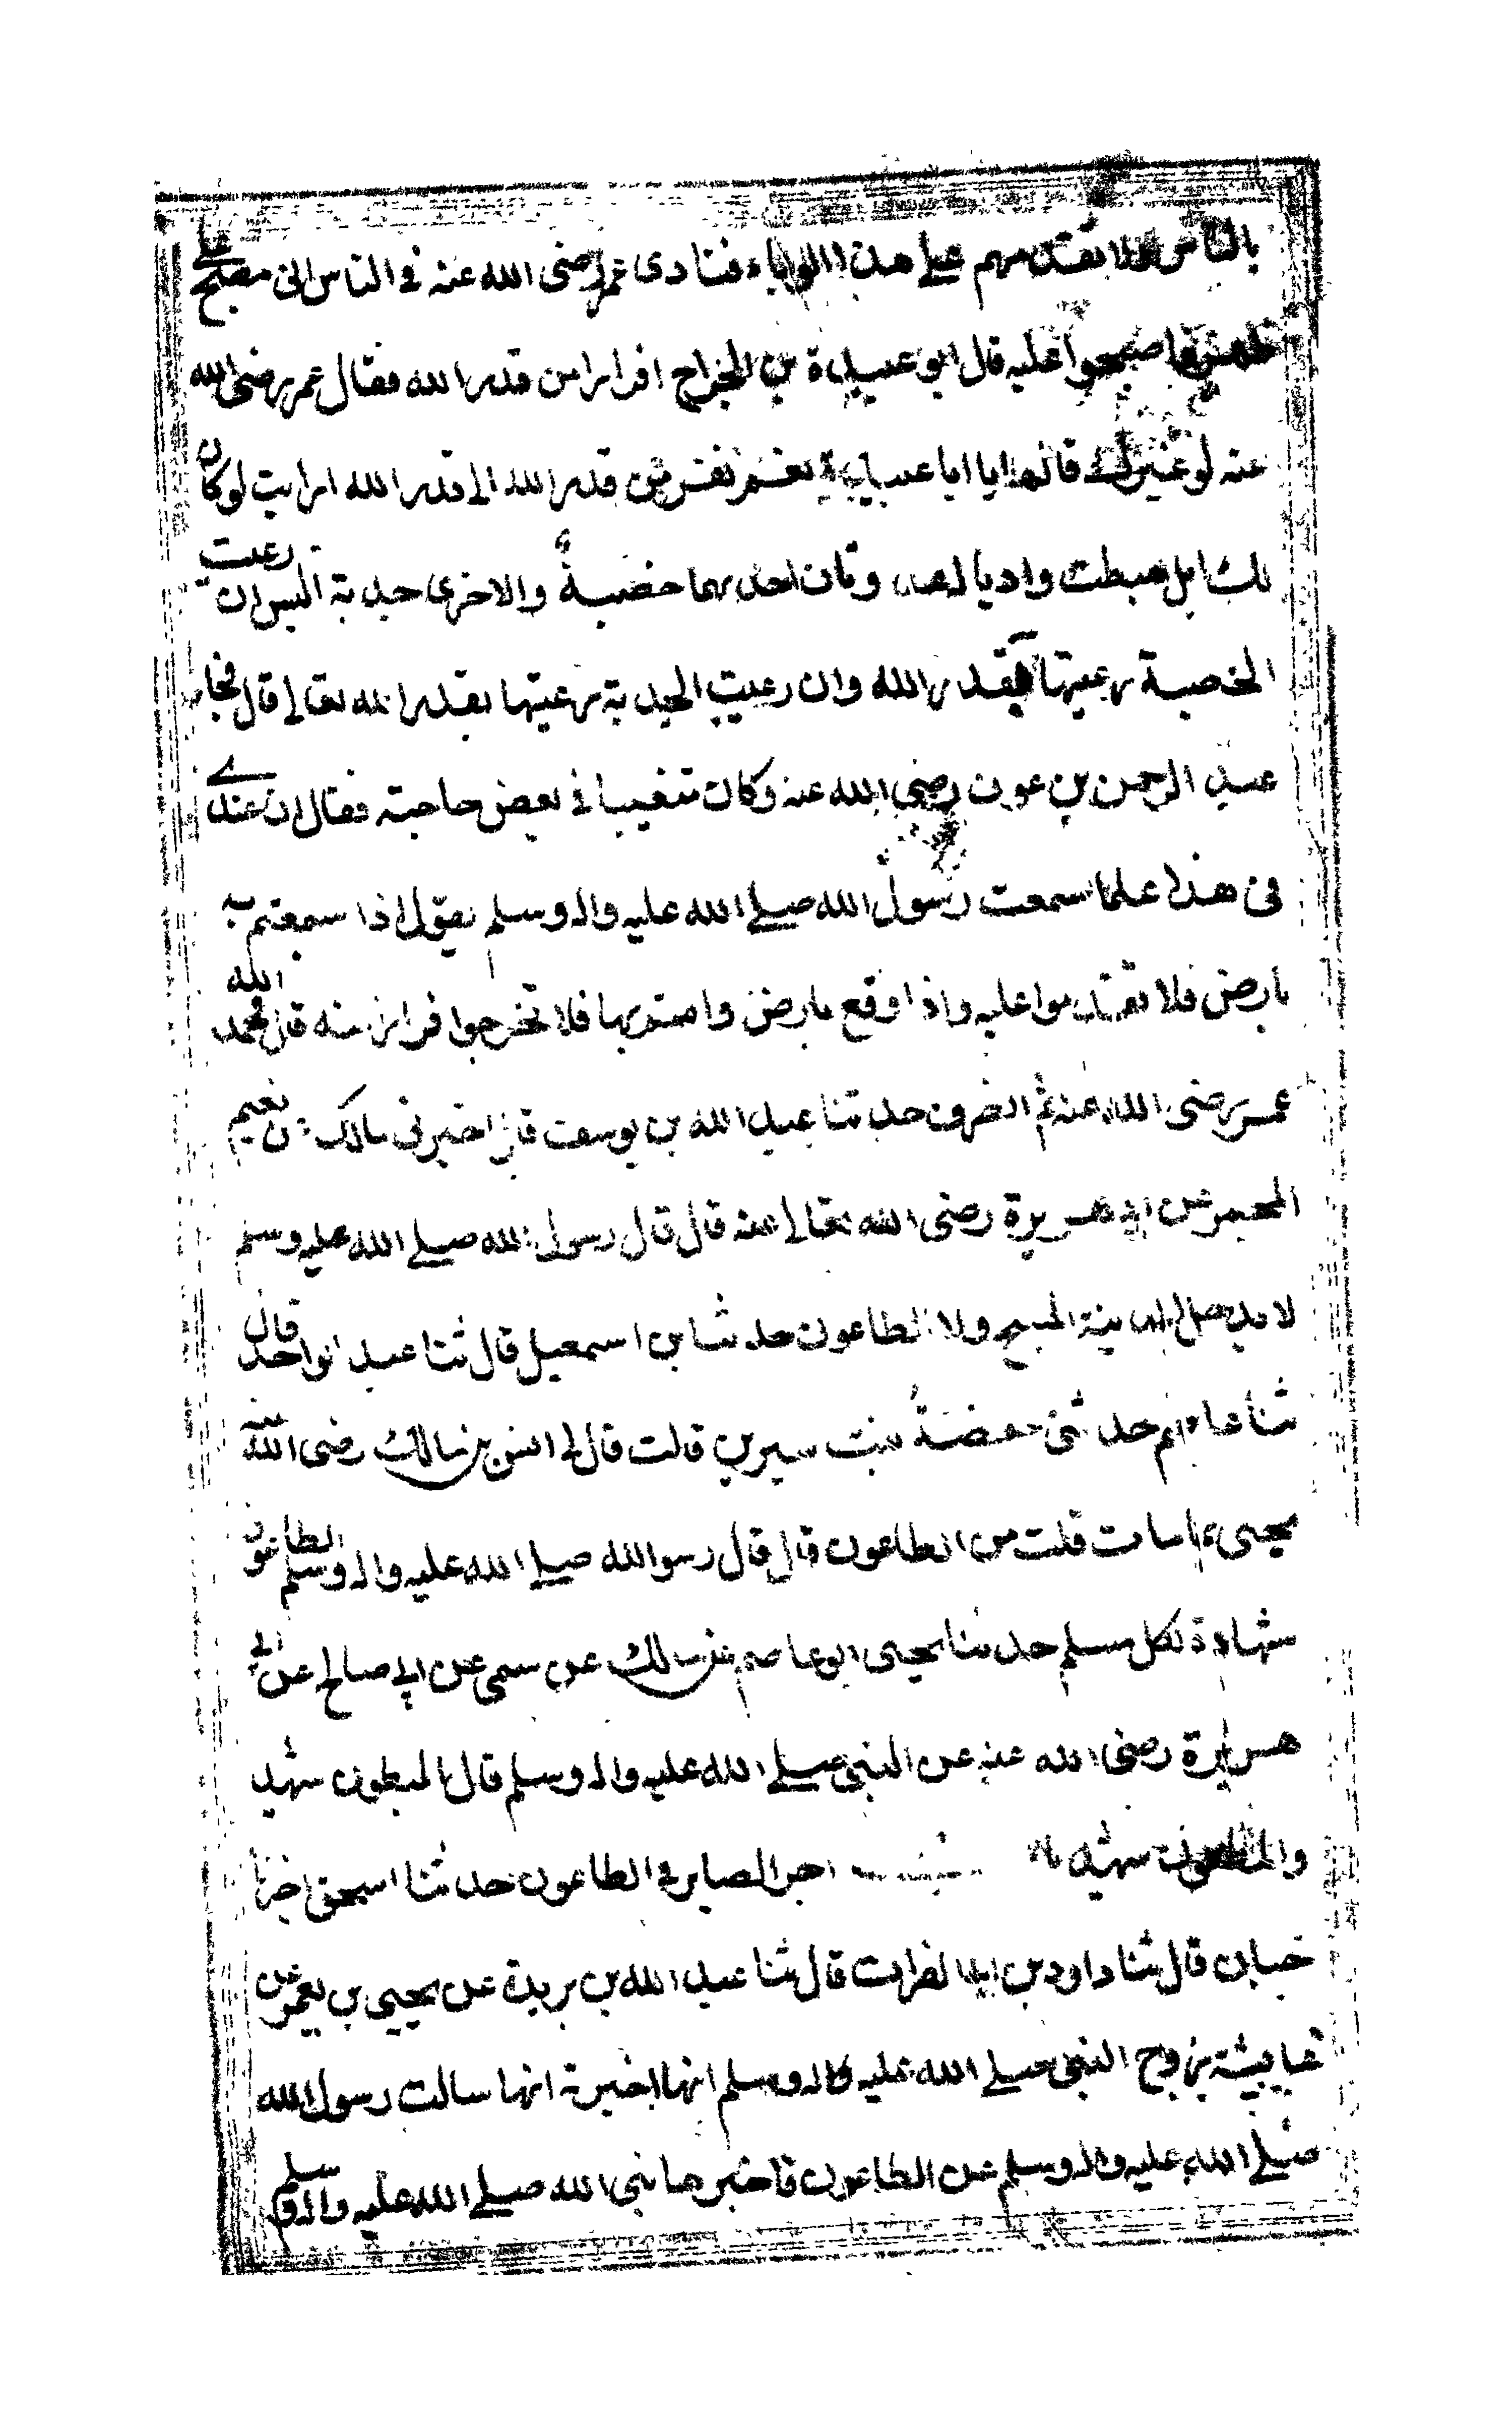 بالناس ولا تقدمهم على هذا الوباء فنادى عمر رضى الله عنه في الناس انى مصبح على
ظهر فاصبحوا عليه قال ابو عبيدة بن الجراح افرارا من قدر الله فقال عمر رضى الله
عنه لو غيرك قالها يا ابا عبيدة نعم نفر من قدر الله الى قدر الله ارايت لو كان
لك ابل هبطت واديا له وتان احدىهما خصبة والاخرى جدبة اليس ان رعيت
الخصبة رعيتها بقدر الله وان رعيت الجدبة رعيتها بقدر الله تعالى قال فجاء
عبد الرحمن بن عوف رضى الله عنه وكان متغيبا في بعض حاجته فقال ان عندى
فى هذا علما سمعت رسول الله صلى الله عليه واله وسلم يقول اذا سمعتم به
بارض فلا تقدموا عليه واذا وقع بارض وانتم بها فلا تخرجوا فرارا منه قال فحمد الله
عمر رضى الله عنه ثم انصرف حدثنا عبد الله بن يوسف قال اخبرنى مالك عن نعيم
المجمر عن ابى هريرة رضى الله تعالى عنه قال قال رسول الله صلى الله عليه وسلم
لا يدخل المدينة المسيح ولا الطاعون حدثنا بن اسمعيل قال ثنا عبد الواحد قال
ثنا عاصم حدثنى حفصة بنت سيرين قالت قال لى انس بن مالك رضى الله عنه
يحيى بما مات قلت من الطاعون قال قال رسوالله صلى الله عليه واله وسلم الطاعون
شهادة لكل مسلم حدثنا يحيى ابو عاصم عن مالك عن سمى عن ابى صالح عن ابى
هريرة رضى الله عنه عن النبى صلى الله عليه واله وسلم قال المبطون شهيد
والمطعون شهيد اجر الصابر في الطاعون حدثنا اسحق اخبرنا
حبان قال ثنا داود بن ابى الفرات قال ثنا عبد الله بن بريدة عن يحيى بن يعمر عن
عايشة زوج النبى صلى الله عليه واله وسلم انها اخبرته انها سالت رسول الله
صلى الله عليه واله وسلم عن الطاعون فاخبرها نبى الله صلى الله عليه واله وسلم